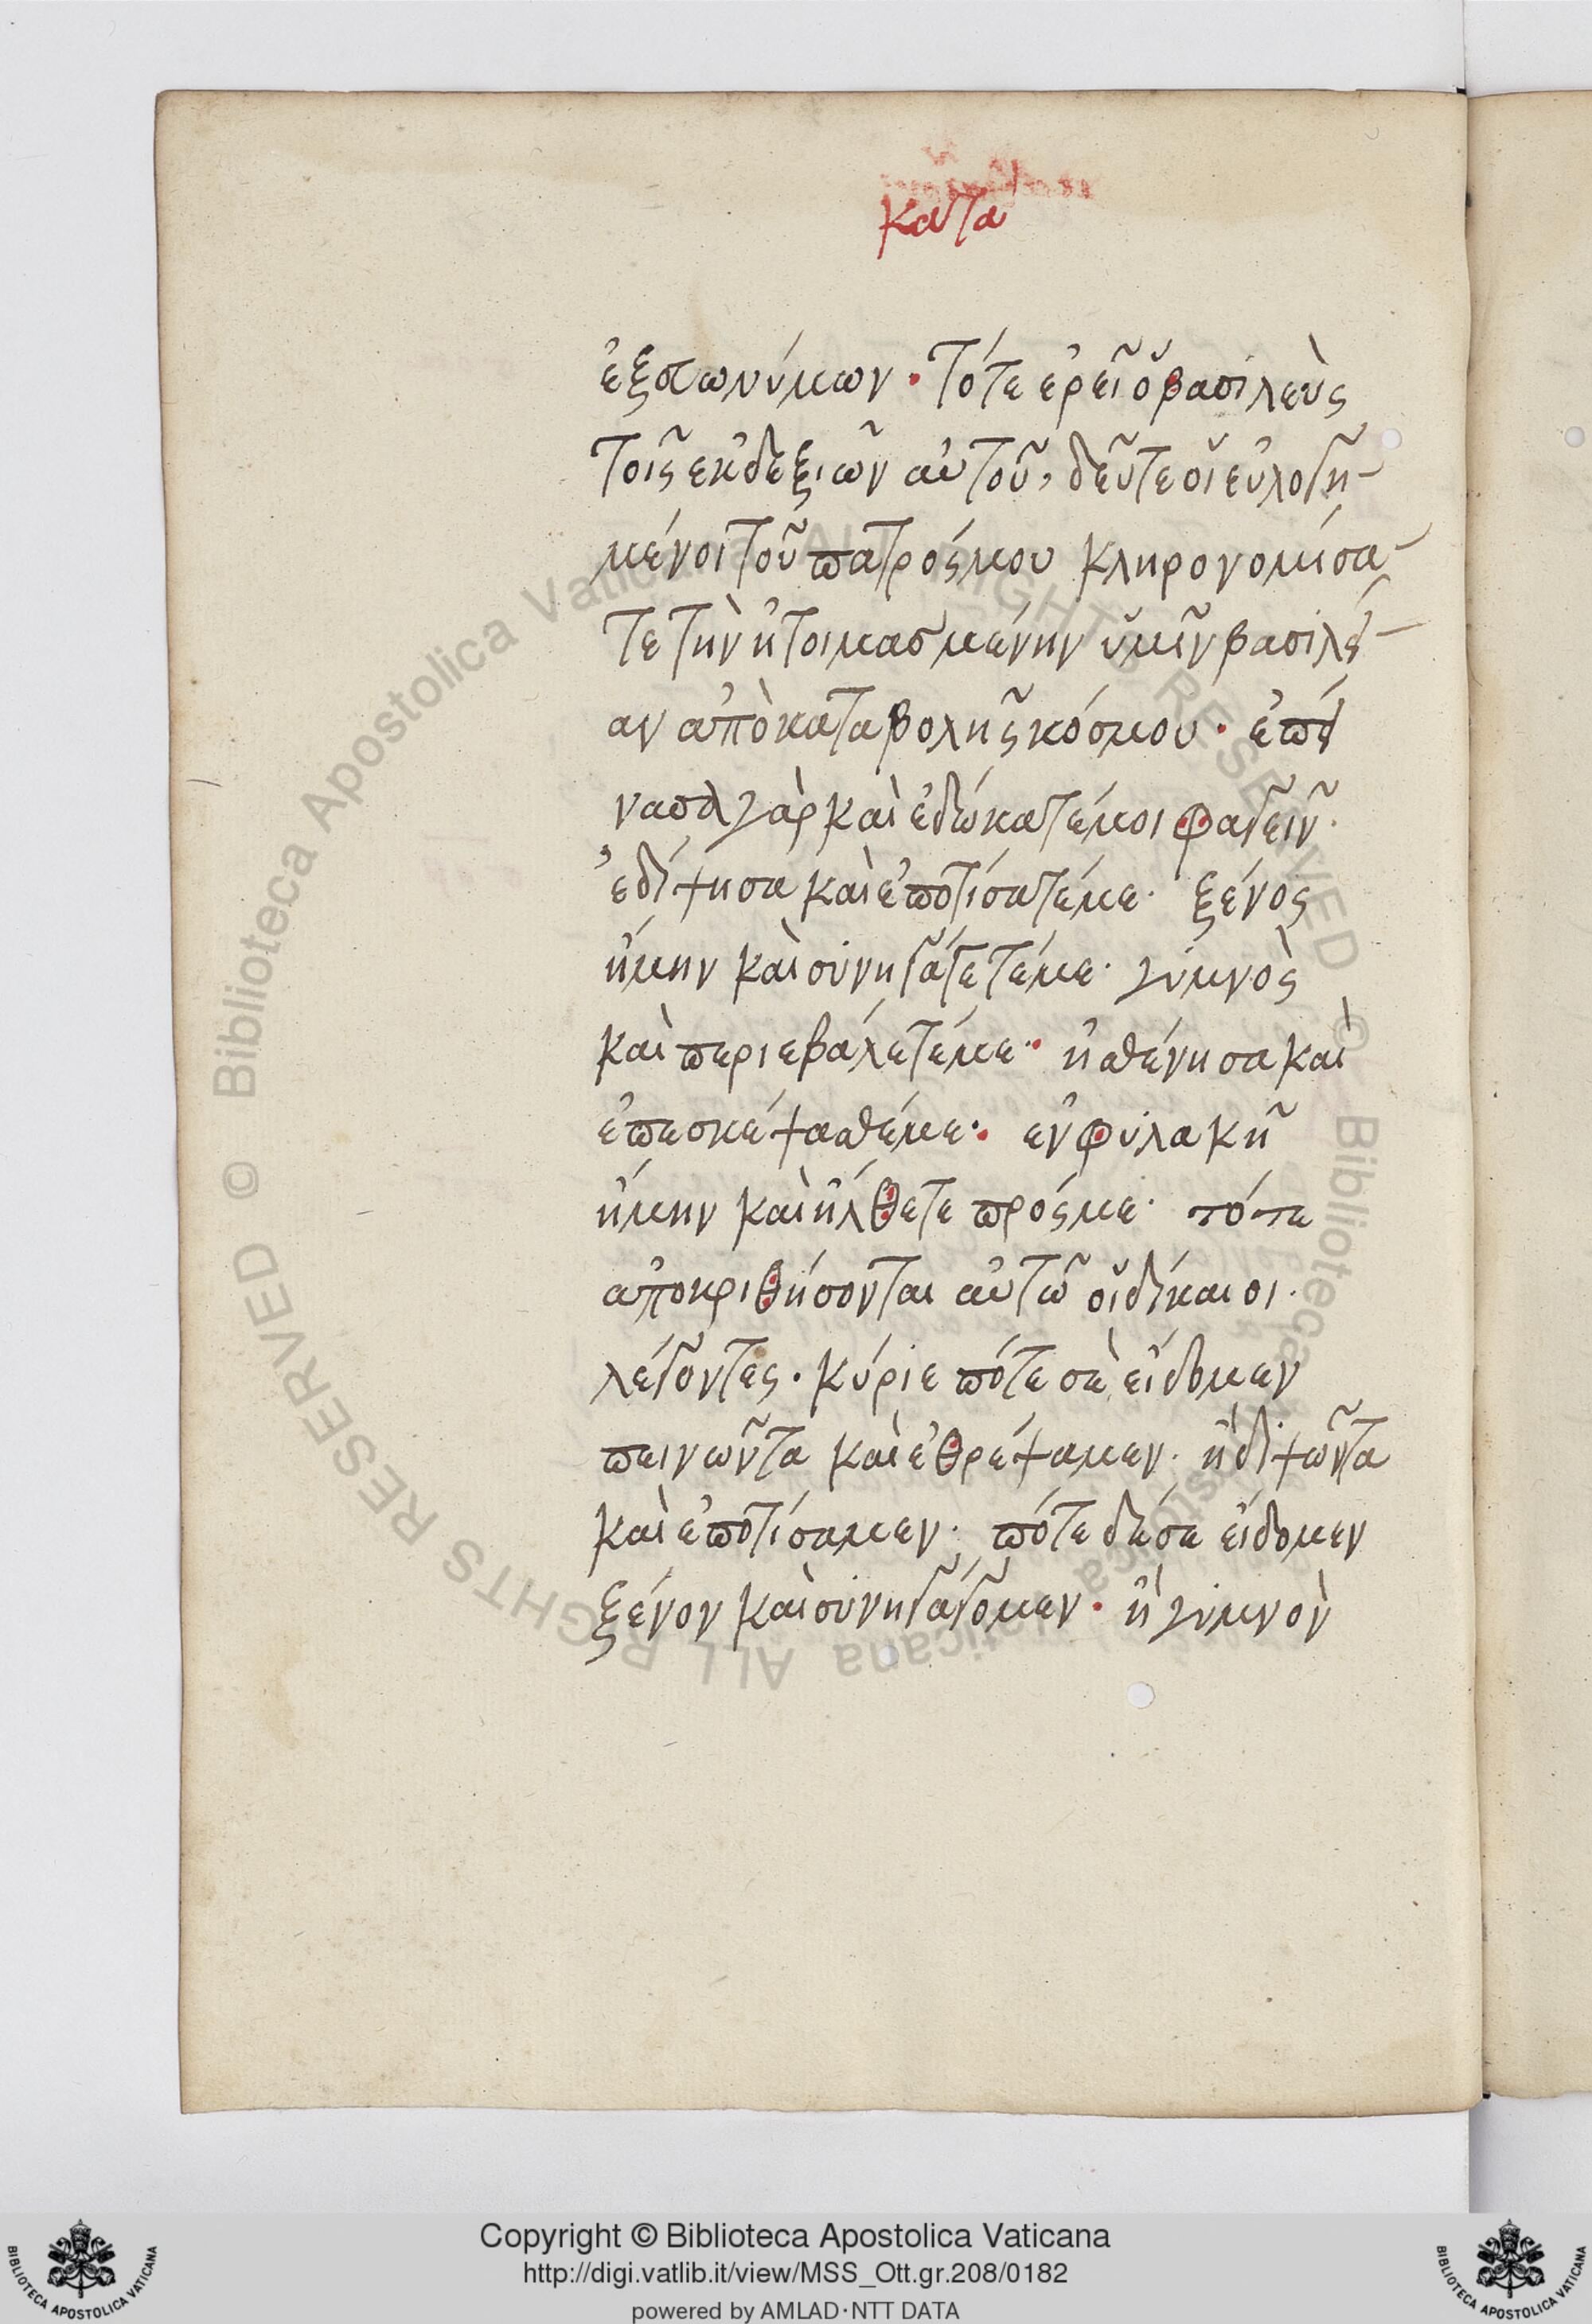 κατα
ἐξ εὐωνύμων · Τότε ἐρεῖ ὁ βασιλεὺς
τοῖς ἐκ δεξιῶν αὐτοῦ, δεῦτε οἱ εὐλογη-
μένοι τοῦ πατρός μου κληρονομήσα-
τε τὴν ἡτοιμασμένην ὑμῖν βασιλεί-
αν ἀπὸ καταβολῆς κόσμου · ἐπεί
νασα γὰρ καὶ ἐδώκατέ μοι φαγεῖν ·
ἐδίψησα καὶ ἐποτίσατέ με · ξένος
ἤμην καὶ συνηγάγετέ με · γυμνὸς
καὶ περιεβάλετέ με · ἠσθένησα καὶ
ἐπεσκέψασθέ με · ἐν φυλακῆ
ἤμην καὶ ἤλθετε πρός με · τότε
ἀποκριθήσονται αὐτῶ οἱ δίκαιοι ·
λέγοντες · κύριε πότε σὲ εἴδομεν
πεινῶντα καὶ ἐθρέψαμεν · ἢ διψῶντα
καὶ ἐποτίσαμεν · πότε δέ σε εἴδομεν
ξένον καὶ συνηγάγομεν · ἢ γυμνὸν
Copyright © Biblioteca Apostolica Vaticana
http://digi.vatlib.it/view/MSS_Ott.gr.208/0182
powered by AMLAD·NTT DATA
© Biblioteca Apostolica Vaticana ALL RIGHTS RESERVED
© Biblioteca Apostolica Vaticana ALL RIGHTS RESERVED
BIBLIOTECA APOSTOLICA VATICANA
BIBLIOTECA APOSTOLICA VATICANA